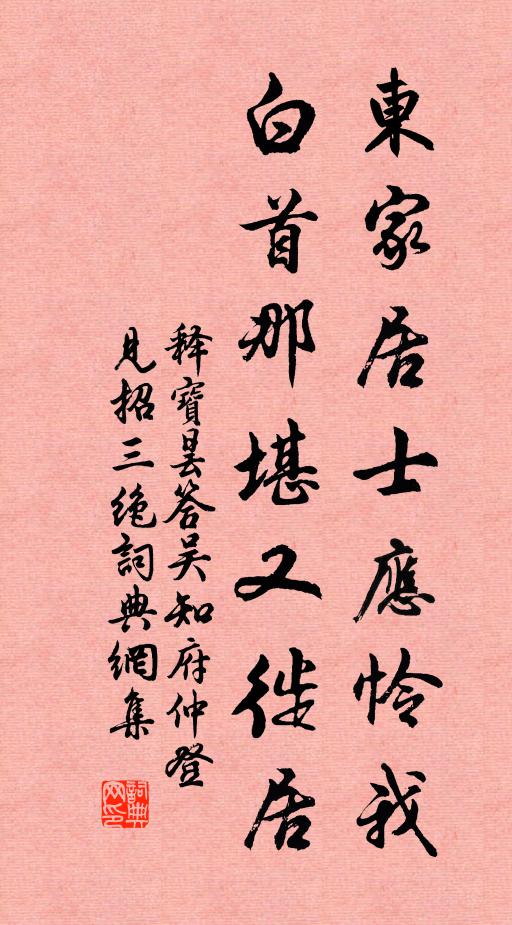 東家居士應怜我
白首那堪又徙居
释寶昙答吴知府仲登
見招三绝詞典網集
詞典网印